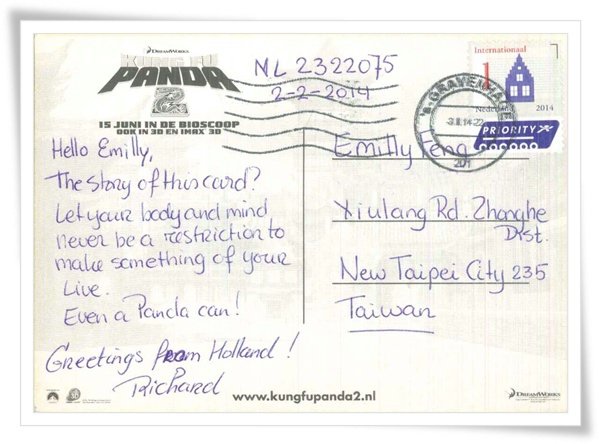 DREAMWORKS
KUNG FU
PANDA
2
15 JUNI IN DE BIOSCOOP
OOK IN 3D EN IMAX 3D
NL 2322075
2-2-2014
Internationaal
1
Nederland 2014
PRIORITY
'S-GRAVENHAGE
Hello Emilly,
The story of this card?
Let your body and mind
never be a restriction to
make something of your
Live.
Even a Panda can!
Greetings from Holland!
Richard
Emilly Feng
Xiulang Rd. Zhonghe
Dist.
New Taipei City 235
Taiwan
www.kungfupanda2.nl
DREAMWORKS